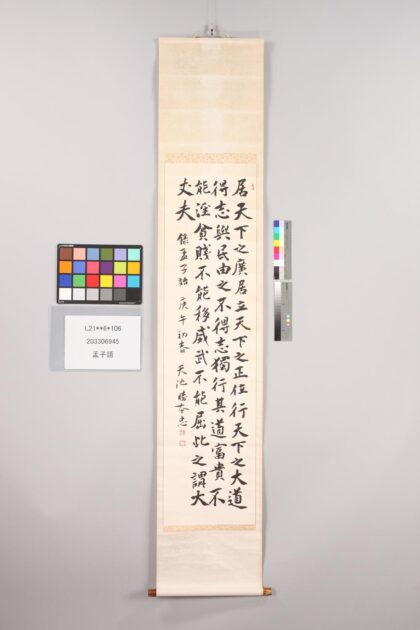 居天下之廣居立天下之正位行天下之大道
得志與民由之不得志獨行其道富貴不
能淫貧賤不能移威武不能屈此之謂大
丈夫 孟子語 庚午初春 天池
L21**6*106
203306945
孟子語